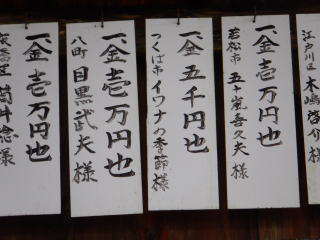 江戸川区 木嶋啓介様
一金壱万円也
若松市 五十嵐喜久夫様
一金五千円也
つくば市 イワナの季節様
一金壱万円也
八町 目黒武夫様
一金壱万円也
筒井稔様